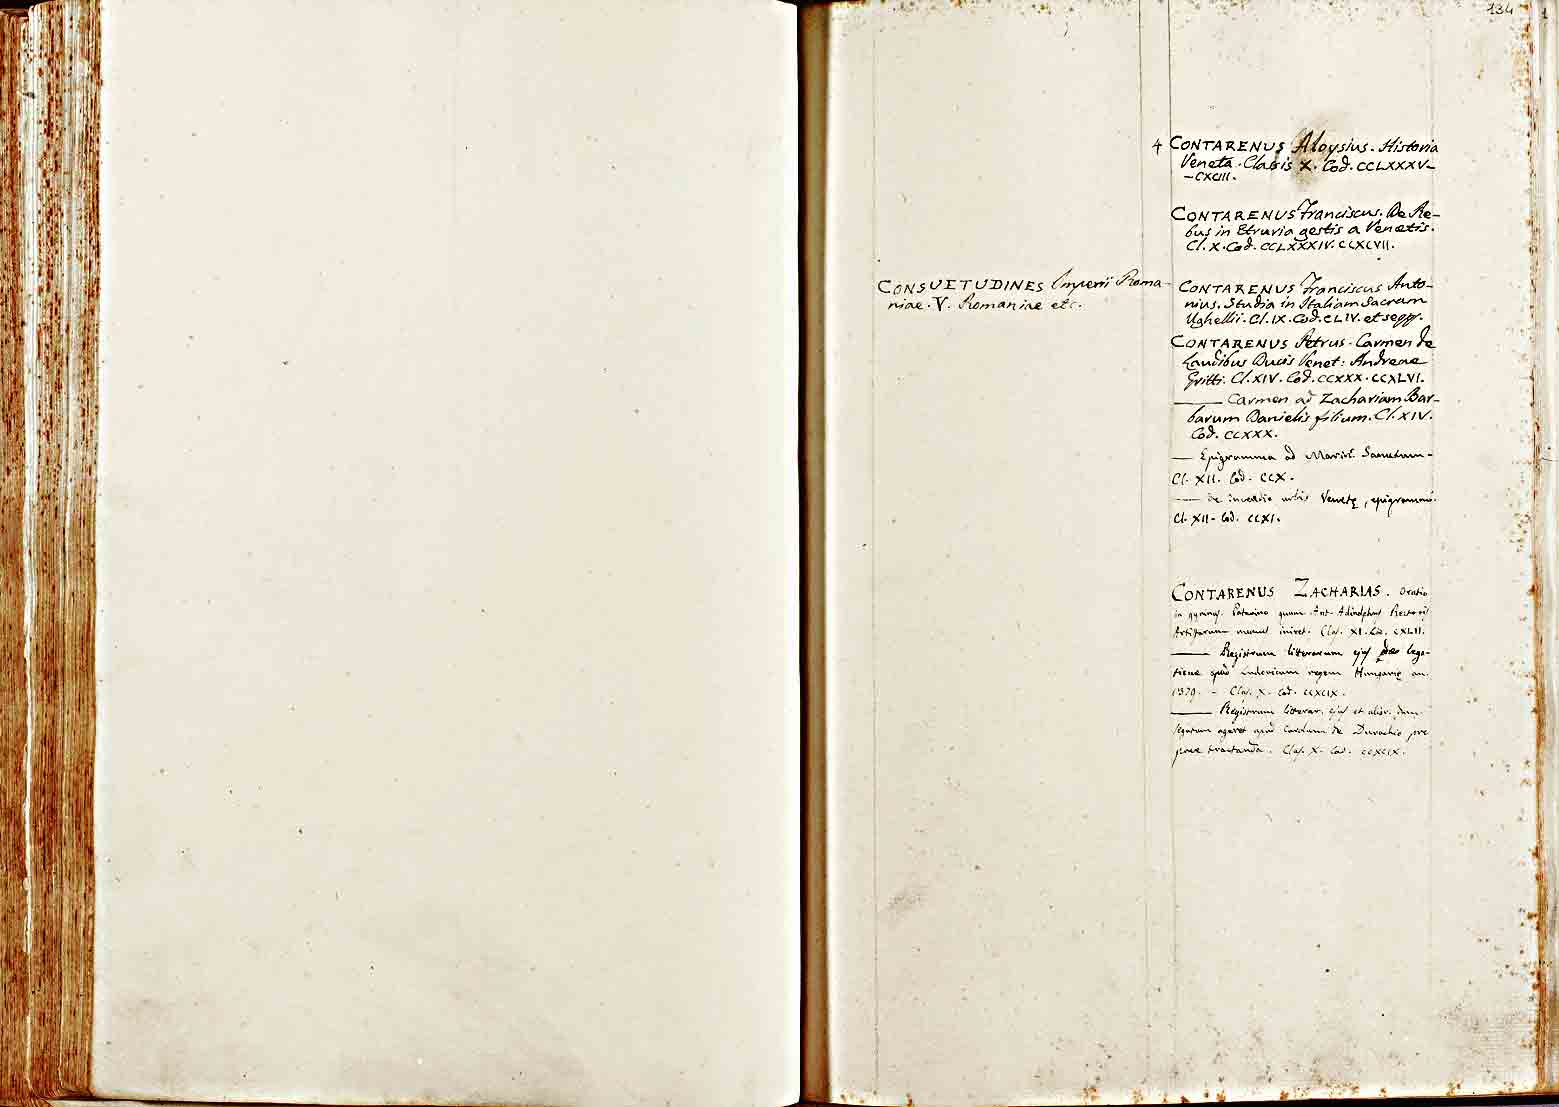 134
CONSUETUDINES Imperii Roma-
niae. V. Romaniae etc.
4 CONTARENUS Aloysius. Historia
Veneta. Classis X. Cod. CCLXXXV-
-CXCIII.
CONTARENUS Franciscus. De Re-
bus in Etruria gestis a Venetis.
Cl. X. Cod. CCLXXXIV. CCXCVII.
CONTARENUS Franciscus Anto-
nius. Studia in Italiam Sacram
Ughellii. Cl. IX. Cod. CLIV. et seqq.
CONTARENUS Petrus. Carmen de
Laudibus Ducis Venet: Andreae
Gritti. Cl. XIV. Cod. CCXXX. CCXLVI.
——— Carmen ad Zachariam Bar-
barum Danielis filium. Cl. XIV.
Cod. CCXXX.
— Epigramma ad Marin. Sanutum-
Cl. XII. Cod. CCX.
— de incendio urbis Venetę, epigramma.
Cl. XII. Cod. CCXI.
CONTARENUS ZACHARIAS. Oratio
in gymnas. Patavino quum Ant. Rectoris
Artistarum munus iniret. Clas. XI. Cod. CXLII.
——— Registrum litterarum ejus pro lega-
tione apud Ludovicum regem Hungarię an.
1379. - Clas. X. Cod. CCXCIX.
——— Registrum litterar. ejus et alior. dum
legatum ageret apud Carolum de Durachio pro
pace tractanda. Clas. X. Cod. CCXCIX.